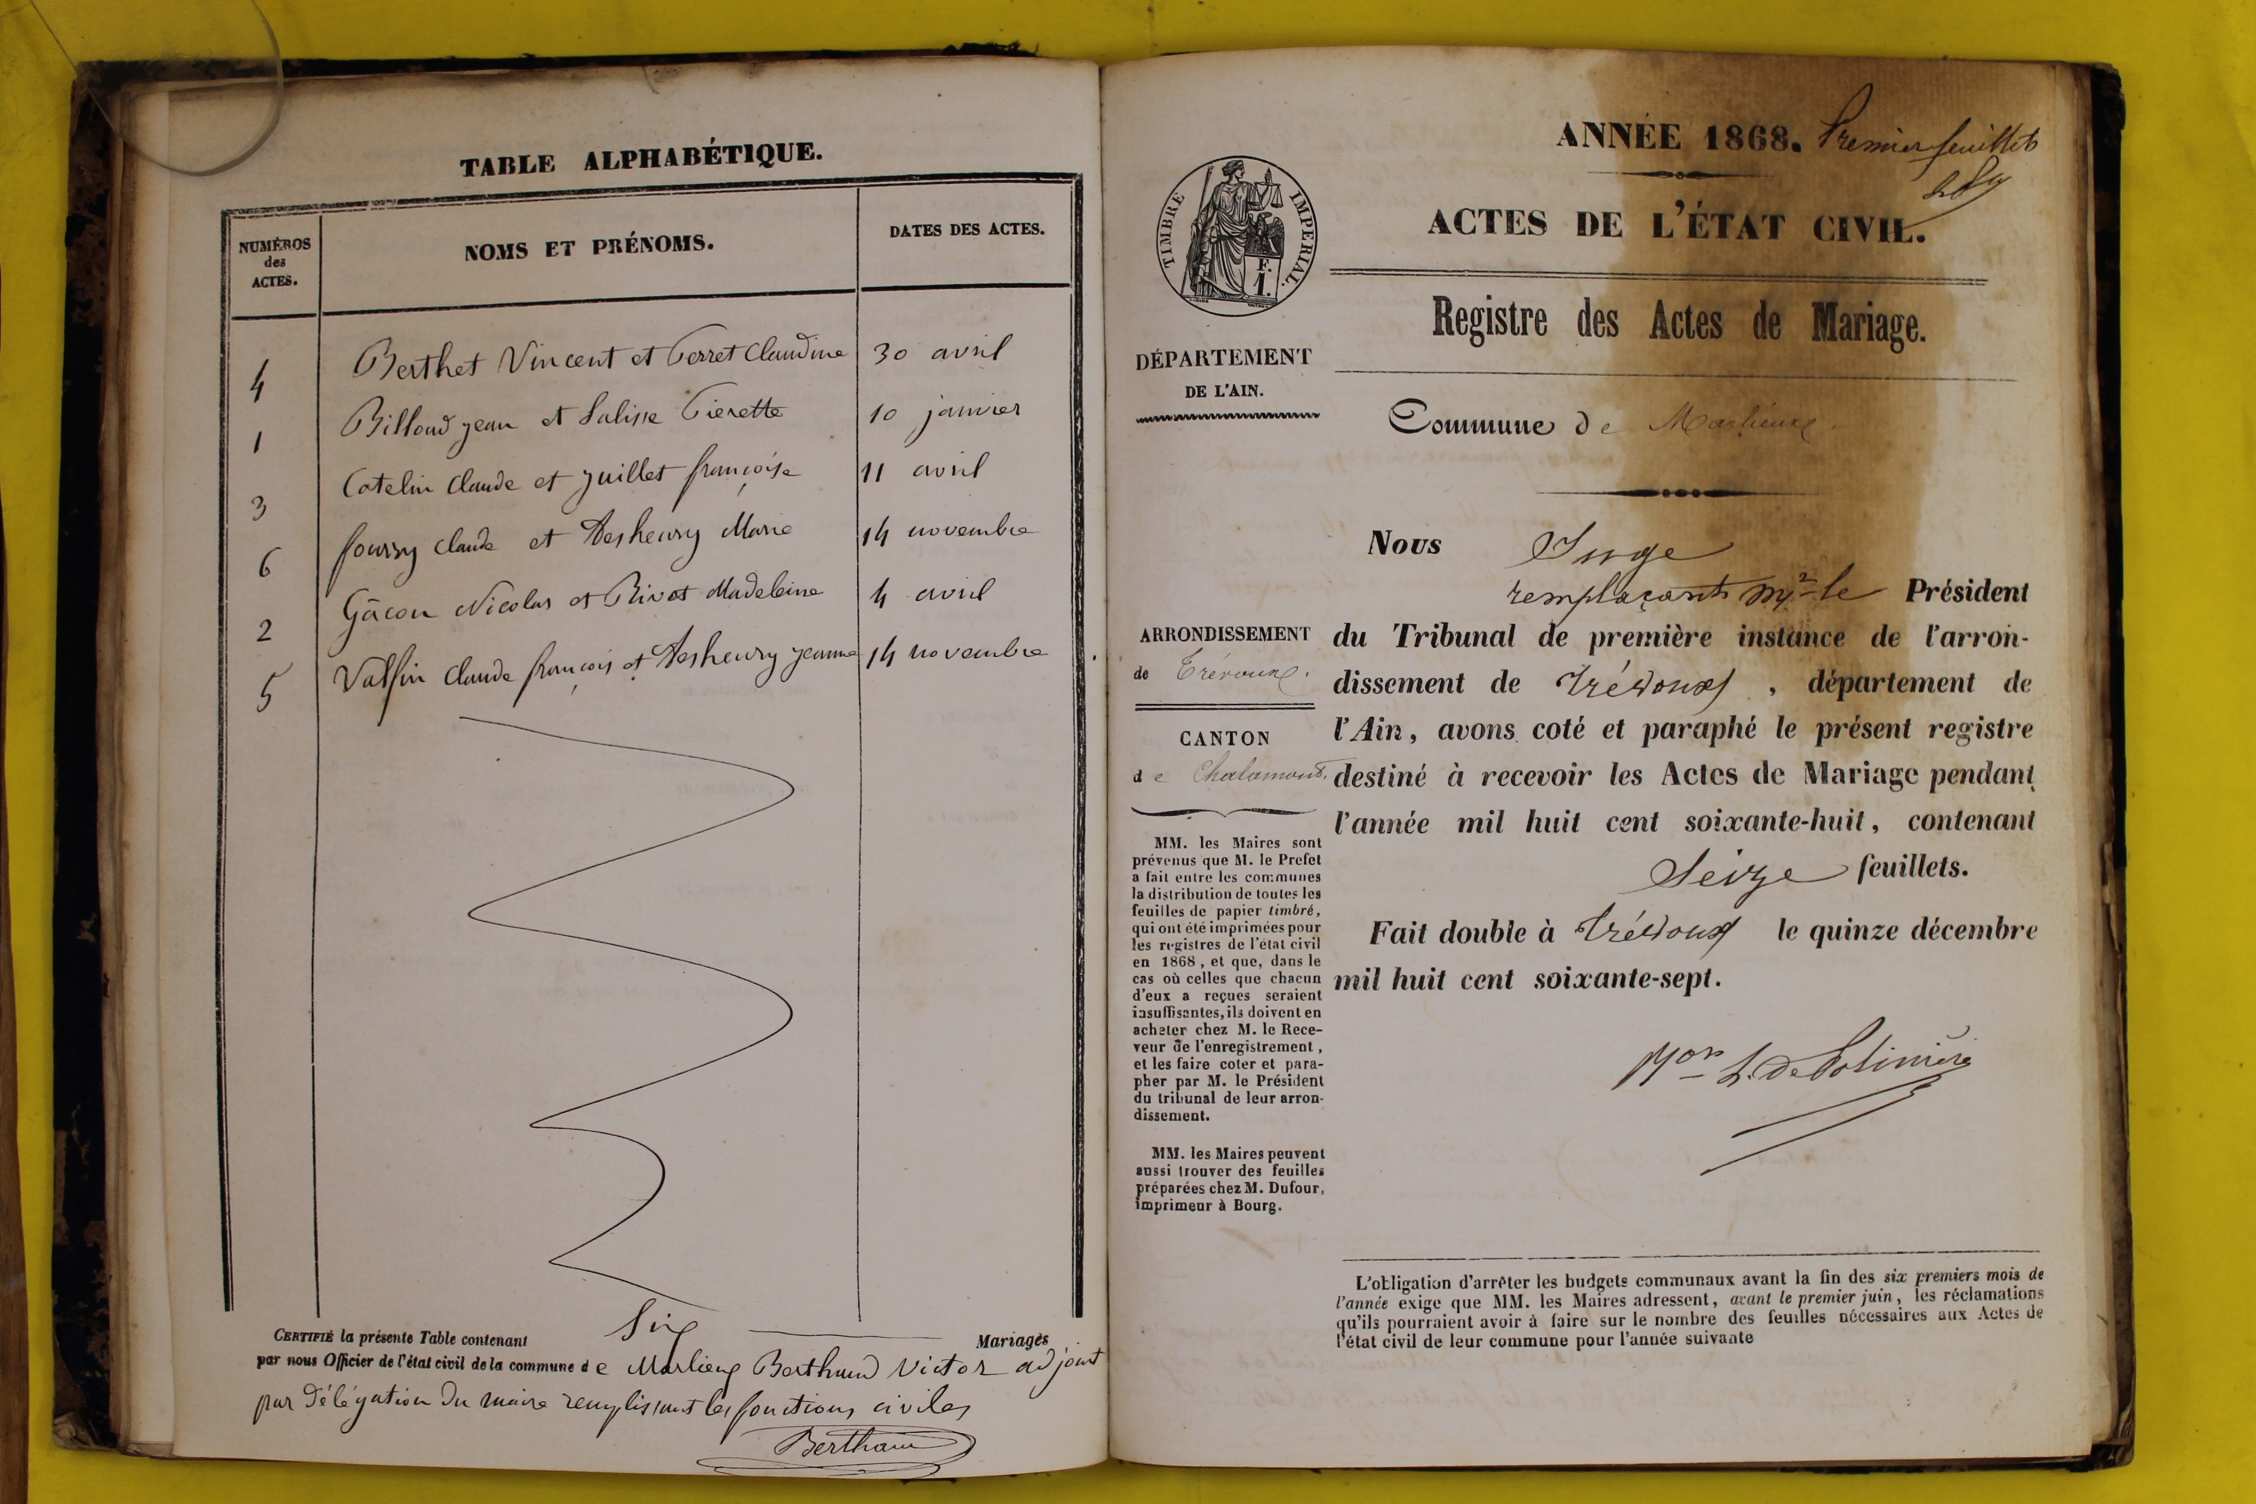 TABLE ALPHABÉTIQUE.
NUMÉROS des ACTES.
NOMS ET PRÉNOMS.
DATES DES ACTES.
4 Berthet Vincent et Perret Claudine 30 avril
1 Billoud jean et Pierette 10 janvier
3 Catelin Claude et juillet françoise 11 avril
6 fourry Claude et Desheury Marie 14 novembre
2 Gâcon Nicolas et Rivot Madeleine 4 avril
5 Claude françois et Desheury jeanne 14 novembre
CERTIFIÉ la présente Table contenant Six Mariages
par nous Officier de l'état civil de la commune de Marlieux Berthaud Victor adjoint
par délégation du maire remplissant les fonctions civiles
Berthaud
ANNÉE 1868. Premier feuillet
ACTES DE L'ÉTAT CIVIL.
TIMBRE IMPERIAL.
F.
1.
Registre des Actes de Mariage.
DÉPARTEMENT
DE L'AIN.
Commune de Marlieux.
ARRONDISSEMENT
de Trévoux.
CANTON
de Chalamont.
MM. les Maires sont
prévenus que M. le Prefet
a fait entre les communes
la distribution de toutes les
feuilles de papier timbré,
qui ont été imprimées pour
les registres de l'état civil
en 1868, et que, dans le
cas où celles que chacun
d'eux a reçues seraient
insuffisantes, ils doivent en
acheter chez M. le Rece-
veur de l'enregistrement,
et les faire coter et para-
pher par M. le Président
du tribunal de leur arron-
dissement.
MM. les Maires peuvent
aussi trouver des feuilles
préparées chez M. Dufour,
imprimeur à Bourg.
Nous Juge
remplaçant Mr le Président
du Tribunal de première instance de l'arron-
dissement de Trévoux, département de
l'Ain, avons coté et paraphé le présent registre
destiné à recevoir les Actes de Mariage pendant
l'année mil huit cent soixante-huit, contenant
Seize feuillets.
Fait double à Trévoux le quinze décembre
mil huit cent soixante-sept.
L. de Polinière
L'obligation d'arrêter les budgets communaux avant la fin des six premiers mois de
l'année exige que MM. les Maires adressent, avant le premier juin, les réclamations
qu'ils pourraient avoir à faire sur le nombre des feuilles nécessaires aux Actes de
l'état civil de leur commune pour l'année suivante